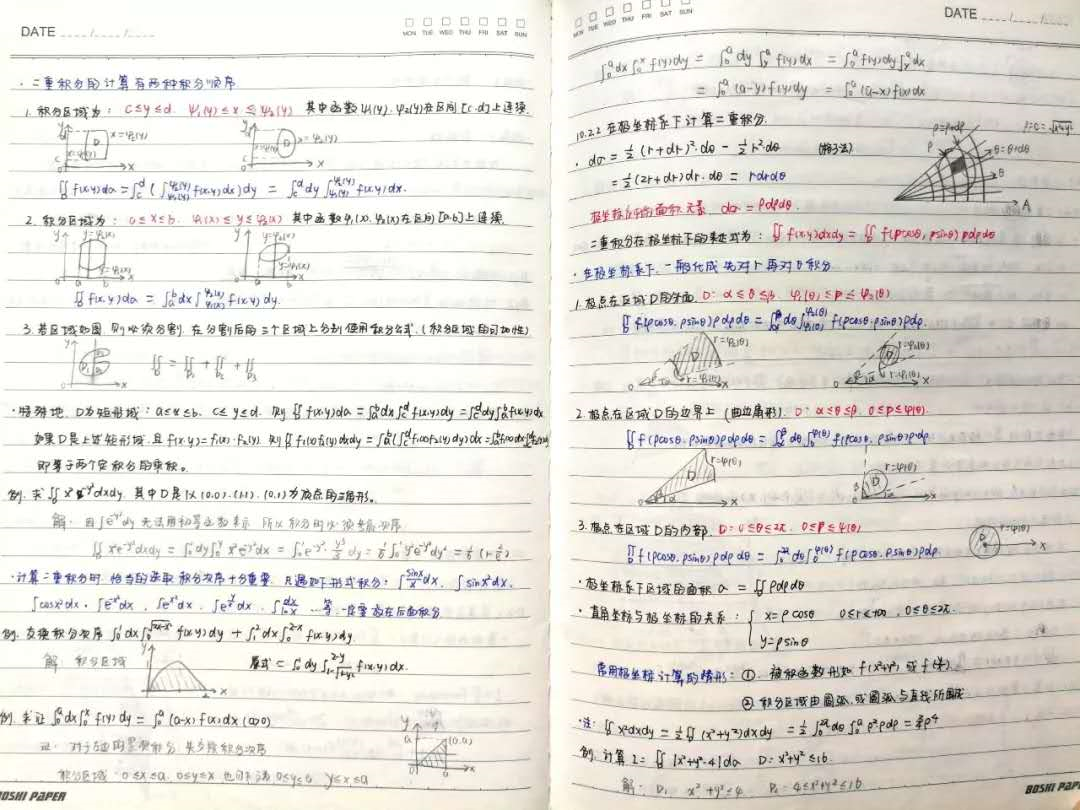 DATE ____/____/____
MON TUE WED THU FRI SAT SUN
· 二重积分的计算有两种积分顺序
1. 积分区域为: c≤y≤d. ψ₁(y)≤x≤ψ₂(y) 其中函数ψ₁(y).ψ₂(y)在区间[c.d]上连续.
∬_D f(x·y)dσ = ∫_c^d (∫_{ψ₁(y)}^{ψ₂(y)} f(x·y)dx)dy = ∫_c^d dy ∫_{ψ₁(y)}^{ψ₂(y)} f(x·y)dx.
2. 积分区域为: a≤x≤b. φ₁(x)≤y≤φ₂(x) 其中函数φ₁(x).φ₂(x)在区间[a·b]上连续.
∬_D f(x·y)dσ = ∫_a^b dx ∫_{φ₁(x)}^{φ₂(x)} f(x·y)dy.
3. 若区域如图 则必须分割. 在分割后的三个区域上分别使用积分公式.(积分区域的可加性)
∬_D = ∬_{D₁} + ∬_{D₂} + ∬_{D₃}
·特殊地. D为矩形域: a≤x≤b. c≤y≤d. 则∬_D f(x·y)dσ = ∫_a^b dx∫_c^d f(x·y)dy = ∫_c^d dy∫_a^b f(x·y)dx
如果D是上述矩形域.且f(x·y)=f₁(x)·f₂(y). 则∬_D f₁(x)f₂(y)dxdy = ∫_a^b(∫_c^d f₁(x)f₂(y)dy)dx
即等于两个定积分的乘积。
例. 求∬_D x²e^{-y²}dxdy 其中D是以(0.0).(1.1).(0.1)为顶点的三角形。
解: 因∫e^{-y²}dy 无法用初等函数表示 所以积分时必须考虑次序
∬_D x²e^{-y²}dxdy = ∫_0^1 dy∫_0^y x²e^{-y²}dx = ∫_0^1 e^{-y²}·y³/3 dy
·计算二重积分时. 恰当的选取积分次序十分重要. 凡遇如下形式积分: ∫sinx/x dx. ∫sinx²dx.
∫cosx²dx. ∫e^{-x²}dx. ∫e^{x²}dx. ∫e^{y/x}dx. ∫dx/lnx …等. 一定要放在后面积分
例. 交换积分次序 ∫_0^1 dx∫_0^{√(2x-x²)} f(x·y)dy + ∫_1^2 dx∫_0^{2-x} f(x·y)dy.
解 积分区域 原式 = ∫_0^1 dy∫_{1-√(1-y²)}^{2-y} f(x·y)dx.
例. 求证 ∫_0^a dx∫_0^x f(y)dy = ∫_0^a (a-x)f(x)dx (a>0)
证: 对于左边的累次积分
积分区域: 0≤x≤a. 0≤y≤x 0≤y≤a y≤x≤a
BOSHI PAPER
MON TUE WED THU FRI SAT SUN
DATE ____/____/____
∫_0^a dx∫_0^x f(y)dy = ∫_0^a dy∫_y^a f(y)dx = ∫_0^a f(y)dy∫_y^a dx
= ∫_0^a (a-y)f(y)dy = ∫_0^a (a-x)f(x)dx
10.2.2 在极坐标系下计算二重积分.
· dσ = ½(r+dr)²·dθ - ½r²·dθ
= ½(2r+dr)dr·dθ = rdrdθ
极坐标系中的面积元素 dσ = ρdρdθ.
二重积分在极坐标下的表达式为: ∬_D f(x·y)dxdy = ∬_D f(ρcosθ, ρsinθ)ρdρdθ
· 在极坐标系下. 一般化成 先对r再对θ积分
1. 极点在区域D的外面. D: α≤θ≤β. φ₁(θ)≤ρ≤φ₂(θ)
∬_D f(ρcosθ.ρsinθ)ρdρdθ = ∫_α^β dθ∫_{φ₁(θ)}^{φ₂(θ)} f(ρcosθ.ρsinθ)ρdρ.
2. 极点在区域D的边界上 (曲边扇形). D: α≤θ≤β. 0≤ρ≤φ(θ).
∬_D f(ρcosθ.ρsinθ)ρdρdθ = ∫_α^β dθ∫_0^{φ(θ)} f(ρcosθ.ρsinθ)ρdρ
3. 极点在区域D的内部. D: 0≤θ≤2π. 0≤ρ≤φ(θ)
∬_D f(ρcosθ.ρsinθ)ρdρdθ = ∫_0^{2π} dθ∫_0^{φ(θ)} f(ρcosθ.ρsinθ)ρdρ.
· 极坐标系下区域的面积 σ = ∬_D ρdρdθ
· 直角坐标与极坐标的关系: { x=ρcosθ 0≤r<+∞. 0≤θ≤2π.
y=ρsinθ
常用极坐标计算的情形: ①. 被积函数形如 f(x²+y²) 或 f(y/x).
② 积分区域由圆弧.或圆弧与直线所围成
·注: ∬_D x²dxdy = ½∬_D(x²+y²)dxdy = ½∫_0^{2π}dθ∫_0^a ρ²ρdρ
例. 计算 I = ∬_D |x²+y²-4|dσ D: x²+y²≤16.
解: D₁ x²+y²≤4 D₂ 4≤x²+y²≤16
BOSHI PAPER